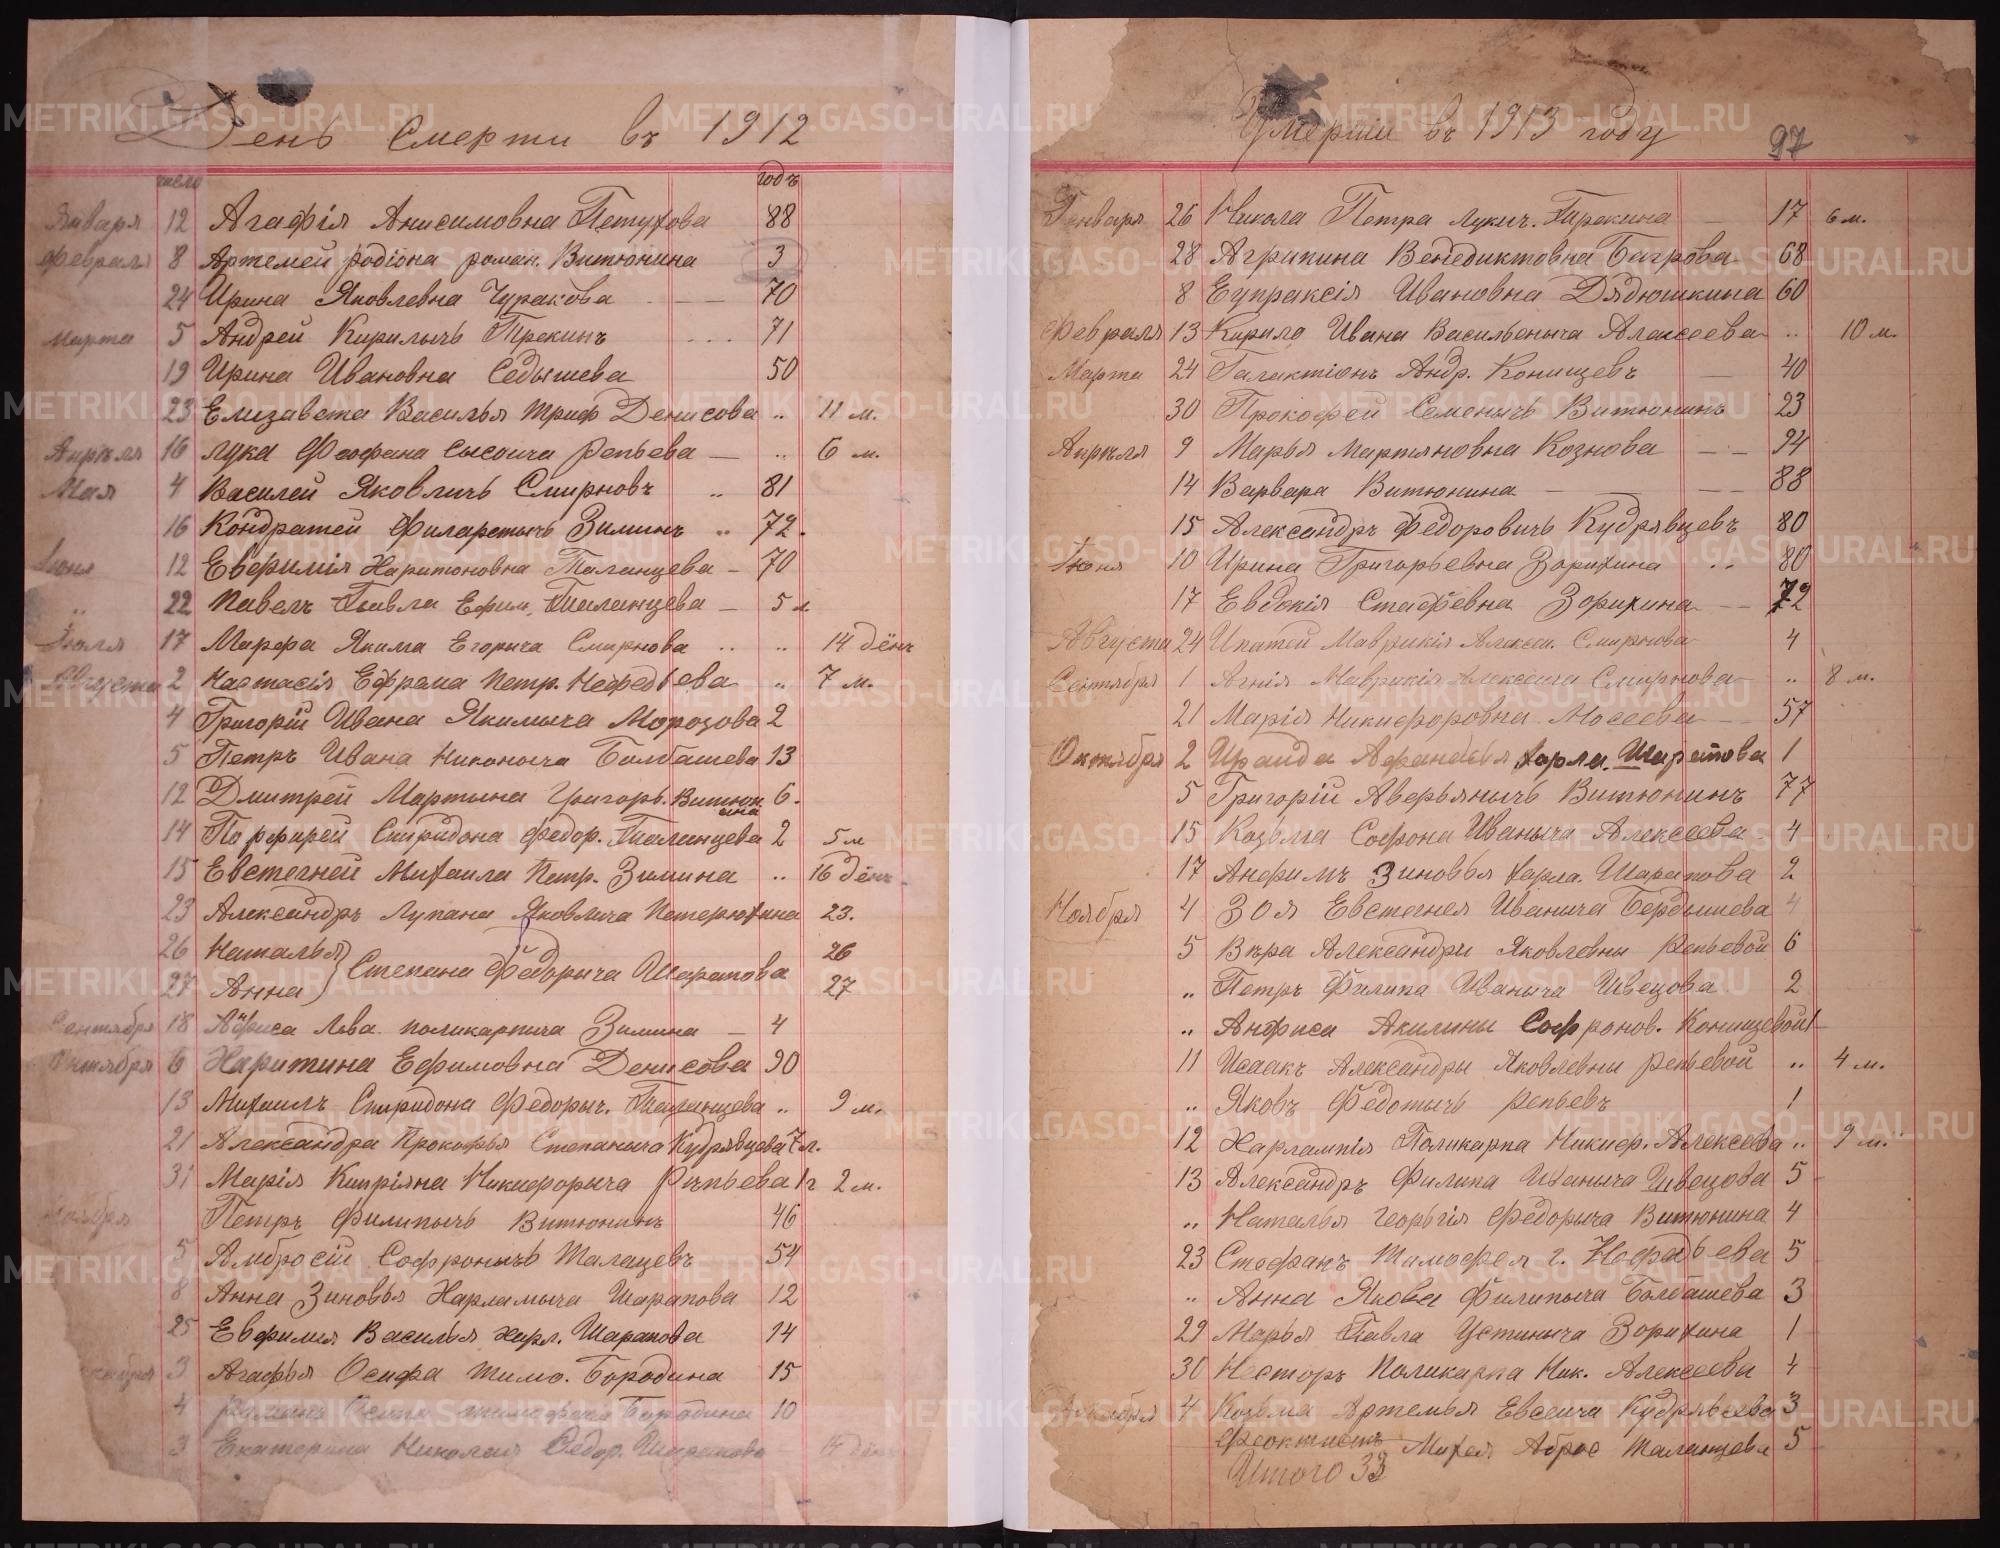 День Смерти въ 1912
число годъ
Января 12 Агафія Анисимовна Петухова 88
Февраля 8 Артемей родіона роман. Витюнина 3
24 Ирина Яковлевна Чуракова 70
марта 5 Андрей Кирилычъ Трекинъ 71
19 Ирина Ивановна Седышева 50
23 Елизавета Василья триф Денисова .. 11 м.
Апрѣля 16 лука Феофана сысоича репьева — .. 6 м.
Мая 4 Василей Яковличъ Смирновъ .. 81
16 Кондратей Филаретычъ Зиминъ .. 72.
Іюня 12 Евфимія Харитоновна Таланцева — 70
.. 22 Павелъ Павла Ефим. Таланцева — 5 л
Іюля 17 Марфа Якима Егорыча Смирнова .. .. 14 дёнъ
Августа 2 Настасія Ефрема Петр. Нефедьева .. 7 м.
4 Григорій Ивана Якимыча Морозова 2
5 Петръ Ивана Никоныча Балбашева 13
12 Дмитрей Мартына Григорь. Витюнина 6.
14 Порфирей Спиридона федор. Таланцева 2 5 м
15 Евстегней Михаила Петр. Зимина .. 16 дёнъ
23 Александръ Лупана Яковлича Петерюхина 23.
26 Наталья 26
Степана Федорыча Шарапова
27 Анна 27
Сентября 18 Афиса Льва поликарпича Зимина — 4
Октября 6 Харитина Ефимовна Денисова 90
13 Михаилъ Спиридона Федорыч. Таланцева .. 9 м.
21 Александра Прокофья Степаныча Кудрявцева 7 л.
31 Марія Кипріяна Никифорыча Рѣпьева 1 г 2 м.
Ноября Петръ Филипычъ Витюнинъ 46
5 Амбросій Софронычъ Талацевъ 54
8 Анна Зиновья Харламыча Шарапова 12
25 Евфимия Василья харл. Шарапова 14
декабря 3 Агафья Осифа тимо. Бородина 15
4 Осипа тимофеича Бородина 10
3 Екатерина Николая Федор. Шарапова — 14 дён
Умершіи въ 1913 году 97
Генваря 26 Никола Петра Лукич. Трекина — 17 6 м.
28 Агрипина Венедиктовна Багрова 68
8 Еупраксія Ивановна Дядюшкина 60
Февраля 13 Кирило Ивана Васильеныча Алексеева .. 10 м.
Марта 24 Галактіонъ Андр. Конищевъ — 40
30 Прокофей Семенычъ Витюнинъ 23
Апрѣля 9 Марья Мартяновна Кознова — 94
14 Варвара Витюнина — 88
15 Александръ Федоровичъ Кудрявцевъ 80
Іюня 10 Ирина Григорьевна Зорихина .. 80
17 Евдокія Стафевна Зорихина — 72
Августа 24 Ипатей Маврикія Алексеи. Смирнова 4
Сентября 1 Агнія Маврикія Алексеича Смирнова .. 8 м.
21 Марія Никифоровна Мосеева — 57
Октября 2 Ираида Афанасья харла. Шарапова 1
5 Григорій Аверьянычъ Витюнинъ 77
15 Козьма Софона Иваныча Алексеева 4
17 Анфимъ Зиновья харла. Шарапова 2
Ноября 4 Зоя Евстегнея Иваныча Бердышева 4
5 Вѣра Александри Яковлевны репьевой 6
.. Петръ Филипа Иваныча Швецова 2
.. Анфиса Акилины Софронов. Конищевой 1
11 Исаакъ Александры Яковлевны репьевой .. 4 м.
.. Яковъ Федотычъ репьевъ 1
12 Харлампія Поликарпа Никиф. Алексеева .. 9 м.
13 Александръ Филипа Иваныча Швецова 5
.. Наталья Георьгія Федорыча Витюнина 4
23 Стефанъ Тимофея г. Нефедьева 5
.. Анна Якова Филипыча Балбашева 3
29 Марья Павла Устиныча Зорихина 1
30 Несторъ Поликарпа Ник. Алексеева 4
Декабря 4 Козьма Артемья Евсеича Кудрявсева 3
Феоктистъ Михея Аброс Таланцева 5
Итого 33